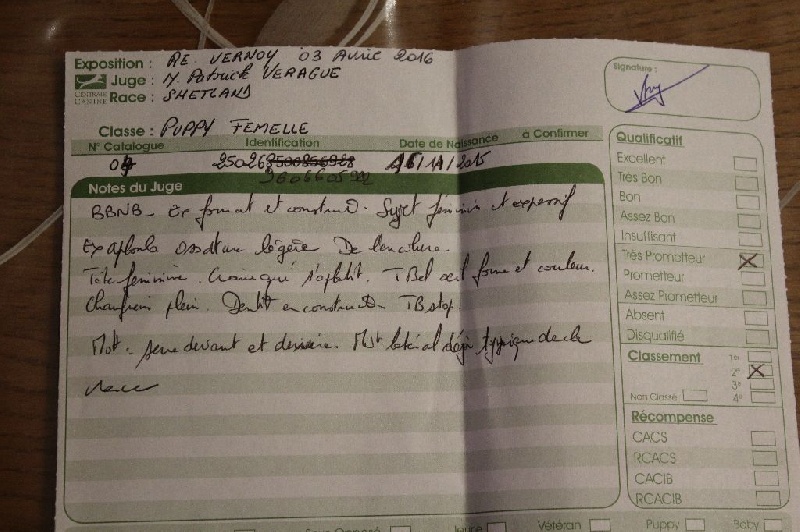 Exposition : RE. VERNOY 03 Avril 2016
Juge : M. Patrick VERAGUE
Race : SHETLAND
CENTRALE CANINE
Signature :
Classe : PUPPY FEMELLE
N° Catalogue Identification Date de Naissance à Confirmer
250268 /11/2015
Notes du Juge
BBNB - Ex format et construct°. Sujet féminin et expressif
Ex aplombs Ossature légère De l'encolure.
Tête féminine. Crâne qui s'aplatit. TBel oeil forme et couleur.
Chanfrein plein. Dentit° en construct° TB stop
Mvt. serré devant et derrière. Mvt latéral déjà typique de la
race
Qualificatif
Excellent
Très Bon
Bon
Assez Bon
Insuffisant
Très Prometteur X
Prometteur
Assez Prometteur
Absent
Disqualifié
Classement 1er
2e X
3e
Non Classé 4e
Récompense
CACS
RCACS
CACIB
RCACIB
Jeune Vétéran Puppy Baby